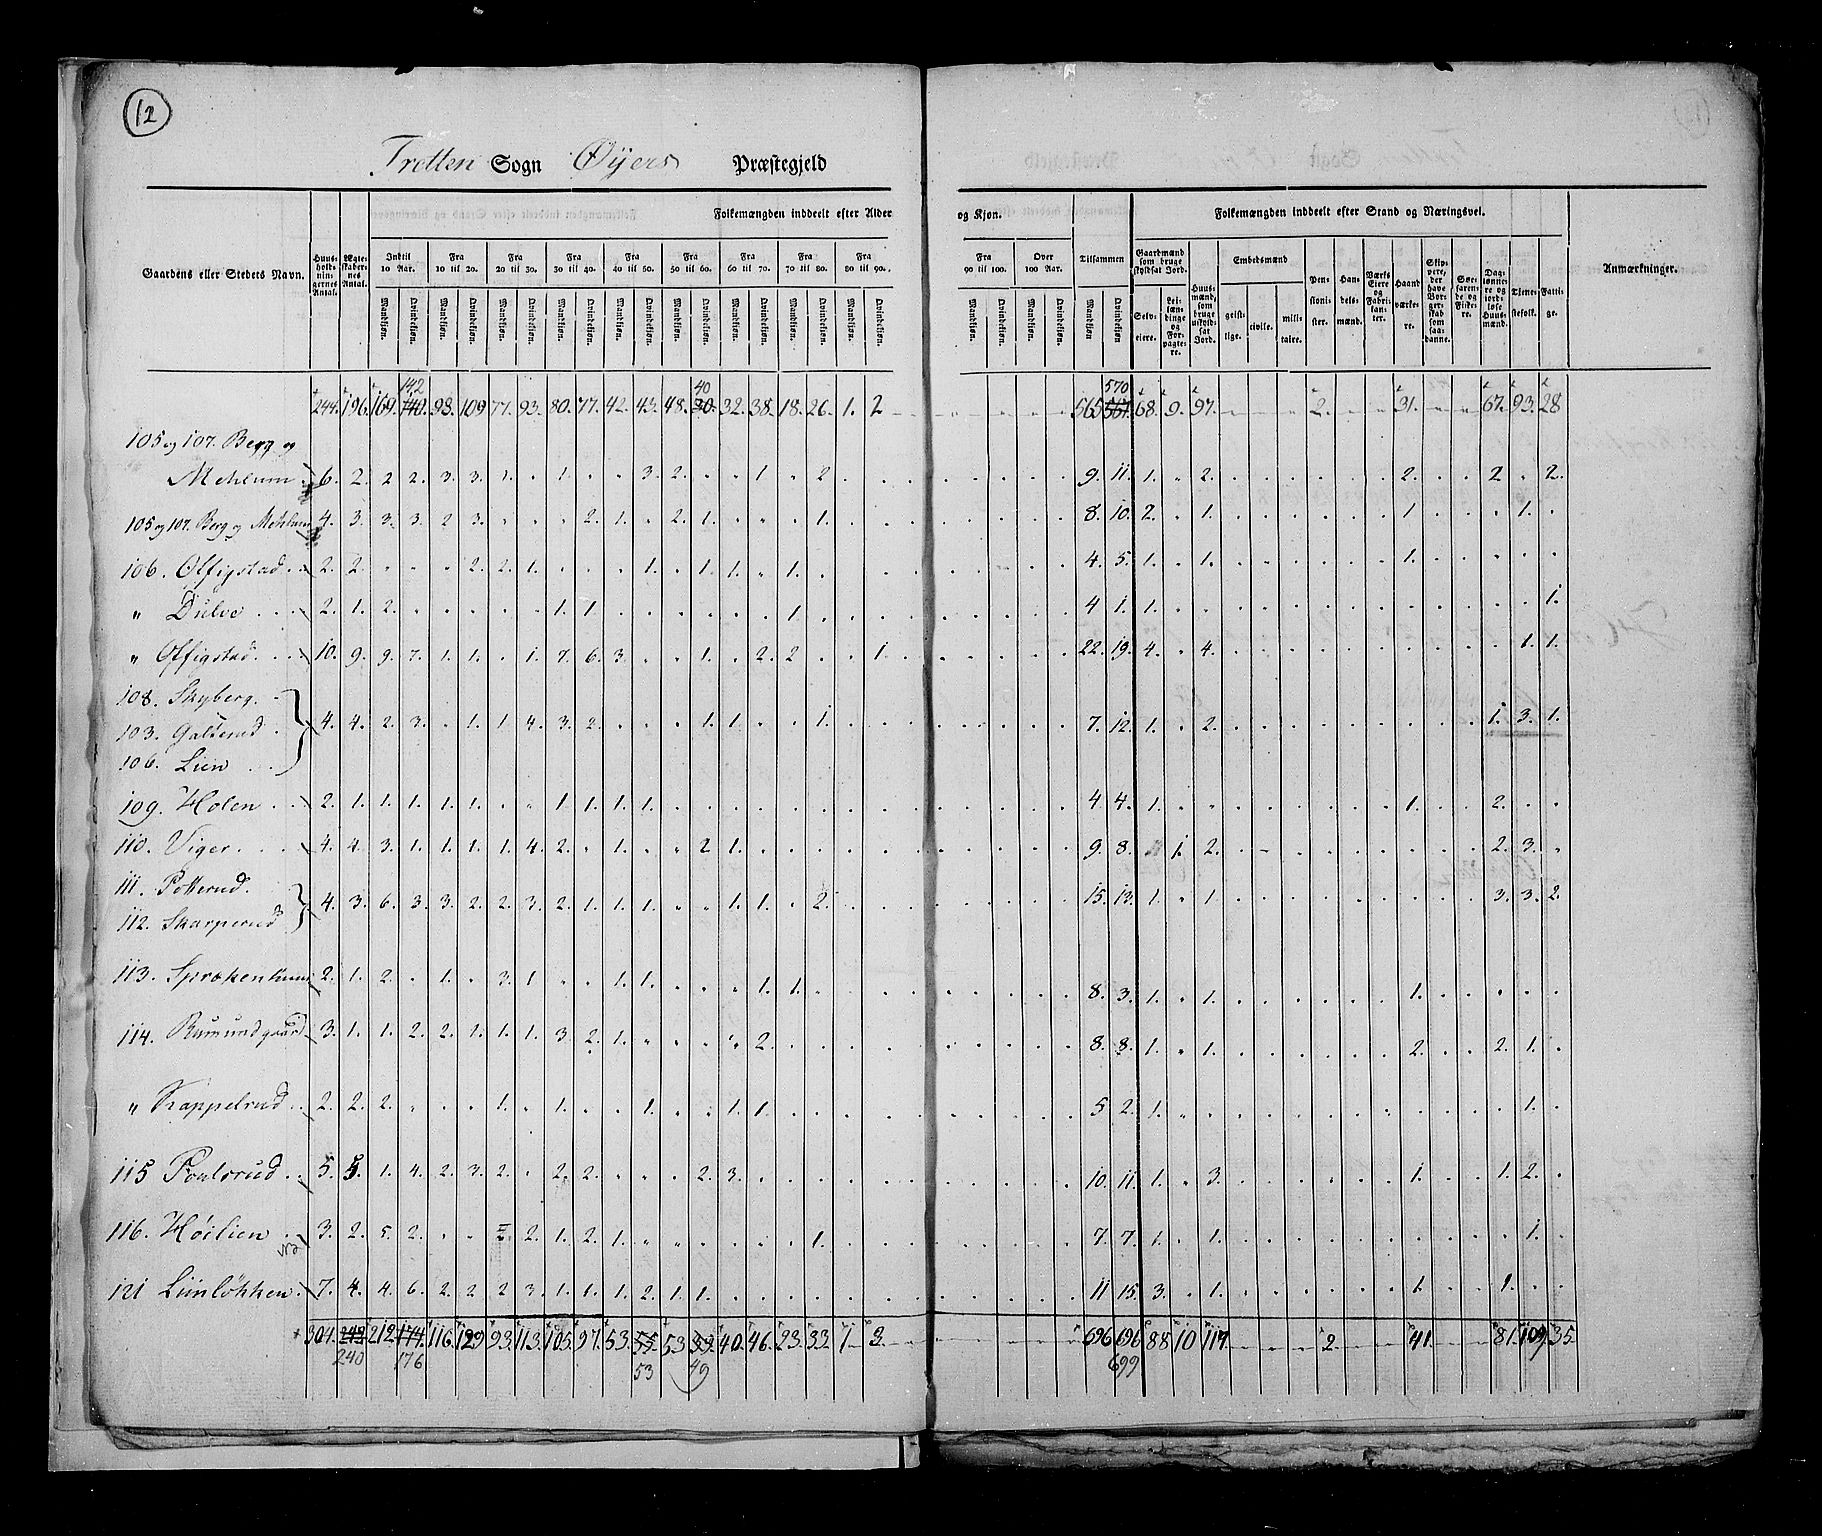 12
Tretten Sogn Øyers Præstegjeld
Folkemængden inddeelt efter Alder og Kjøn. Folkemængden inddeelt efter Stand og Næringsvei.
Gaardens eller Stedets Navn. Huusholdningernes Antal. Ægteskabernes Antal. Indtil 10 Aar. Fra 10 til 20. Fra 20 til 30. Fra 30 til 40. Fra 40 til 50. Fra 50 til 60. Fra 60 til 70. Fra 70 til 80. Fra 80 til 90. Fra 90 til 100. Over 100 Aar. Tilsammen Gaardmænd som bruge skyldsat Jord. Huusmænd, som bruge uskyldsat Jord. Embedsmænd Pensionister. Handelsmænd. Værks Eiere og Fabrikanter. Haandværkere. Skippere, der have Borgerskab som saadanne. Søefarende og Fiskere. Daglønnere og jordløse Huusmænd. Tjenestefolk. Fattige. Anmærkninger.
Mandkjøn. Qvindekjøn. Mandkjøn. Qvindekjøn. Mandkjøn. Qvindekjøn. Mandkjøn. Qvindekjøn. Mandkjøn. Qvindekjøn. Mandkjøn. Qvindekjøn. Mandkjøn. Qvindekjøn. Mandkjøn. Qvindekjøn. Mandkjøn. Qvindekjøn. Mandkjøn. Qvindekjøn. Mandkjøn. Qvindekjøn. Mandkjøn Qvindekjøn. Selveiere. Leilændinge og Forpagtere. geistlige. civile. militaire.
142 40 570
244. 196. 169. 140. 93. 109 77. 93. 80. 77. 42. 43. 48. 30. 32. 38. 18. 26. 1. 2 565 567. 68. 9. 97. 2. 31. 67. 93. 28
105 og 107. Berg og
Mehlum 6. 2. 2 2. 3. 3. 1. 1. 3. 2. 1. 2. 9. 11. 1. 2. 2. 2 2.
105 og 107. Berg og Mehlum 4. 3. 3. 3. 2 3. 2. 1. 2. 1. 1. 8. 10. 2. 1. 1. 1.
106. Offigstad 2. 2. 2. 2. 1. 1. 1. 1. 1. 4. 5. 1. 1. 1.
" Dulve 2. 1. 2. 1. 1. 1. 4 1. 1. 1.
" Offigstad. 10. 9. 9. 7. 1. 1. 1. 7. 6. 3. 1. 2. 2. 1. 22. 19. 4. 4. 1. 1.
108. Skyberg.
103. Galterud 4. 4. 2. 3. 1. 1. 4. 3. 2. 1. 1. 1. 7. 12. 1. 2. 1. 3. 1.
106. Lien
109. Holen 2. 1. 1. 1. 1. 1. 1. 1. 1. 1. 4 4. 1. 1. 2.
110. Viger. 4. 4. 3. 1. 1. 1. 1. 4. 2. 1. 2 1. 9. 8. 1. 2. 2. 3.
111. Potterud.
112. Skarperud 4. 3. 6. 3. 3. 2. 2. 3. 2. 1. 1. 1. 1. 1. 2. 15. 13. 1. 1. 3. 3. 2.
113. 2. 1. 2. 1. 3. 1. 1. 1. 1. 1. 8. 3. 1. 1. 1.
114. Rumundgaard 3. 1. 1. 2. 2. 1. 1. 1. 3. 2. 1. 2. 8. 8. 1. 1. 2. 2. 1.
" Kappelrud 2. 2. 2. 1. 1. 1. 1. 1. 5 2. 1. 1.
115 Poulsrud 5. 5. 1. 4. 2. 3. 2. 2. 2. 2. 3. 10. 11. 1. 3. 1. 1. 2.
116. Høilien 3. 2. 5. 2. 2. 2. 1. 2. 1. 1. 7. 7. 1. 1. 1.
121 Liinløkken 7. 4. 4. 6. 2. 2 2 3. 1. 1. 1. 2. 1. 1. 11 15. 3. 1. 1. 1.
304. 242 212 174. 116. 129 93. 113. 105. 97. 53. 55. 53 39. 40. 46. 23. 33. 1 3. 696 696 88 10 117 2. 41. 81. 109. 35.
240 176 53 49 699